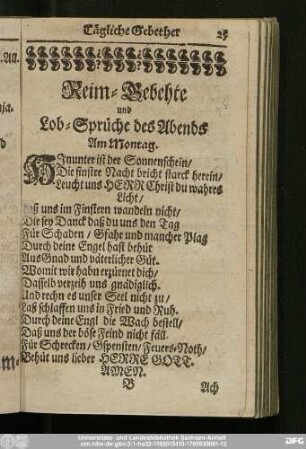 Tägliche Gebether 25
Reim-Gebehte
und
Lob-Sprüche des Abends
Am Montag.
HInunter ist der Sonnenschein/
Die finstre Nacht bricht starck herein/
Leucht uns HERR Christ du wahres
Licht/
Laß uns im Finstern wandeln nicht/
Dir sey Danck daß du uns den Tag
Für Schaden/ Gfahr und mancher Plag
Durch deine Engel hast behüt
Aus Gnad und väterlicher Güt.
Womit wir habn erzürnet dich/
Dasselb verzeih uns gnädiglich.
Und rechn es unser Seel nicht zu/
Laß schlaffen uns in Fried und Ruh.
Durch deine Engl die Wach bestell/
Daß uns der böse Feind nicht fäll.
Für Schrecken/ Gspensten/ Feuers-Noth/
Behüt uns lieber HERRE GOTT.
AMEN.
B Ach
Universitäts- und Landesbibliothek Sachsen-Anhalt